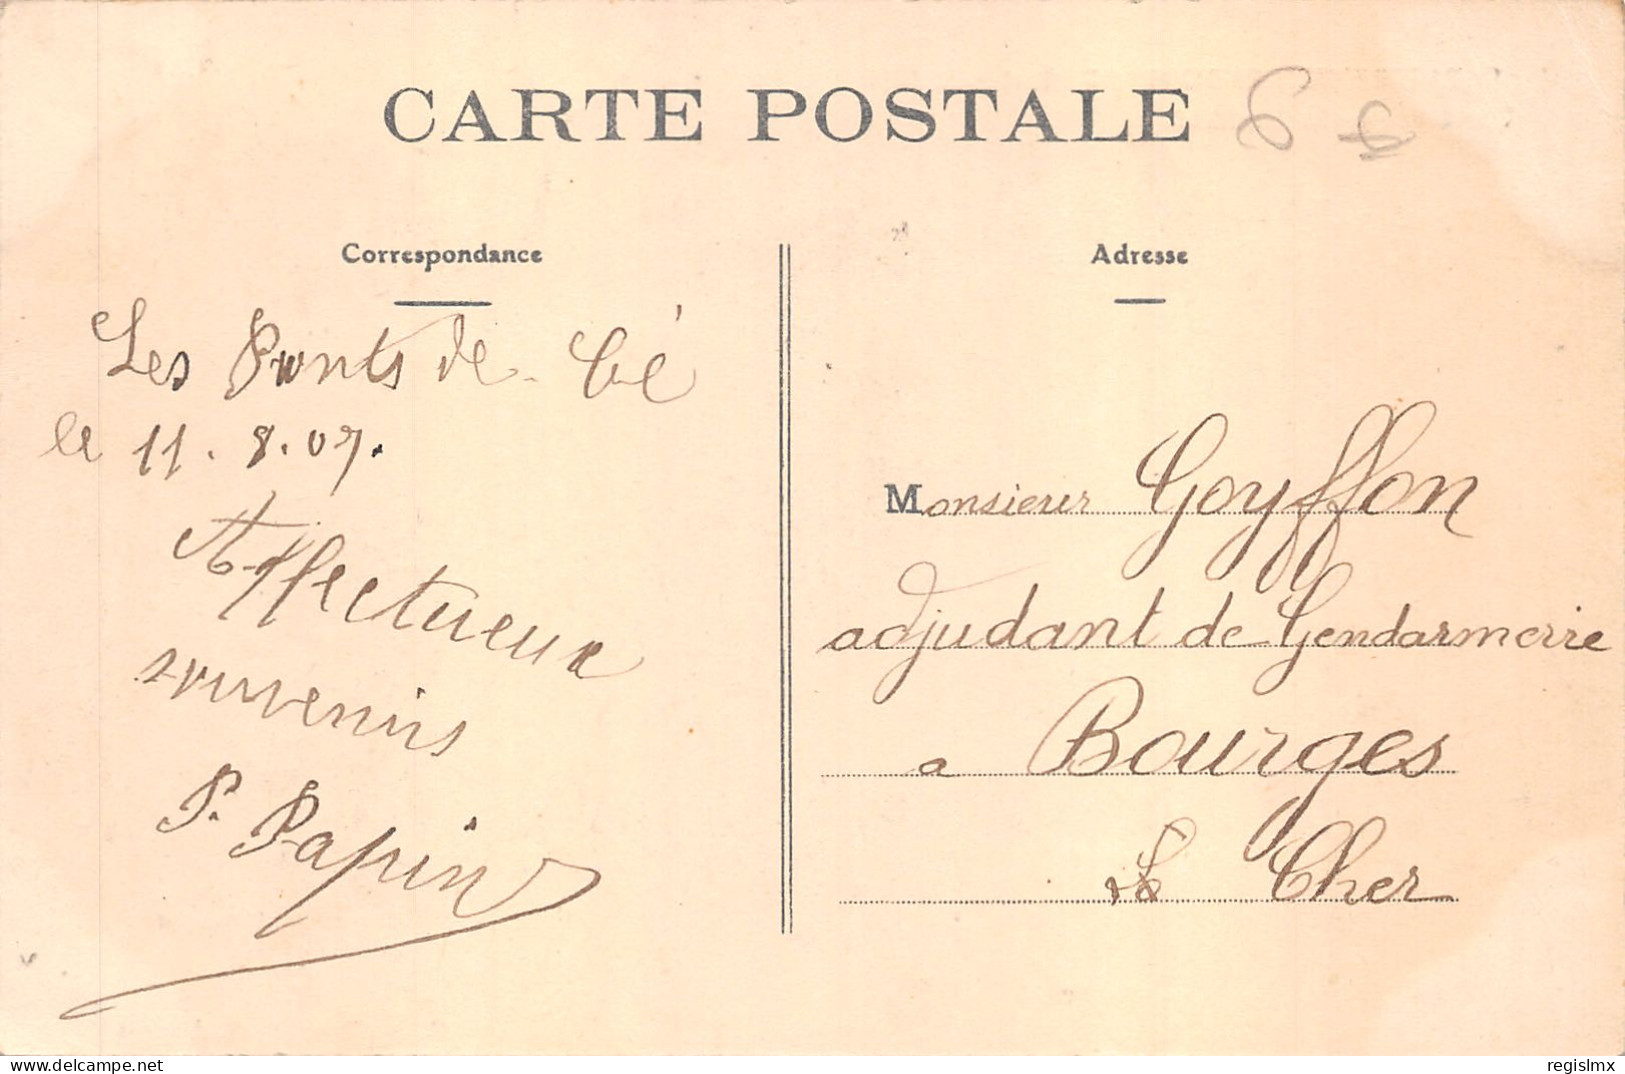 CARTE POSTALE
Correspondance
Les Ponts de-Cé
le 11.8.07.
Affectueux
souvenirs
P. Papin
Adresse
Monsieur Goyffon
adjudant de Gendarmerie
a Bourges
Cher
delcampe.net
regislmx